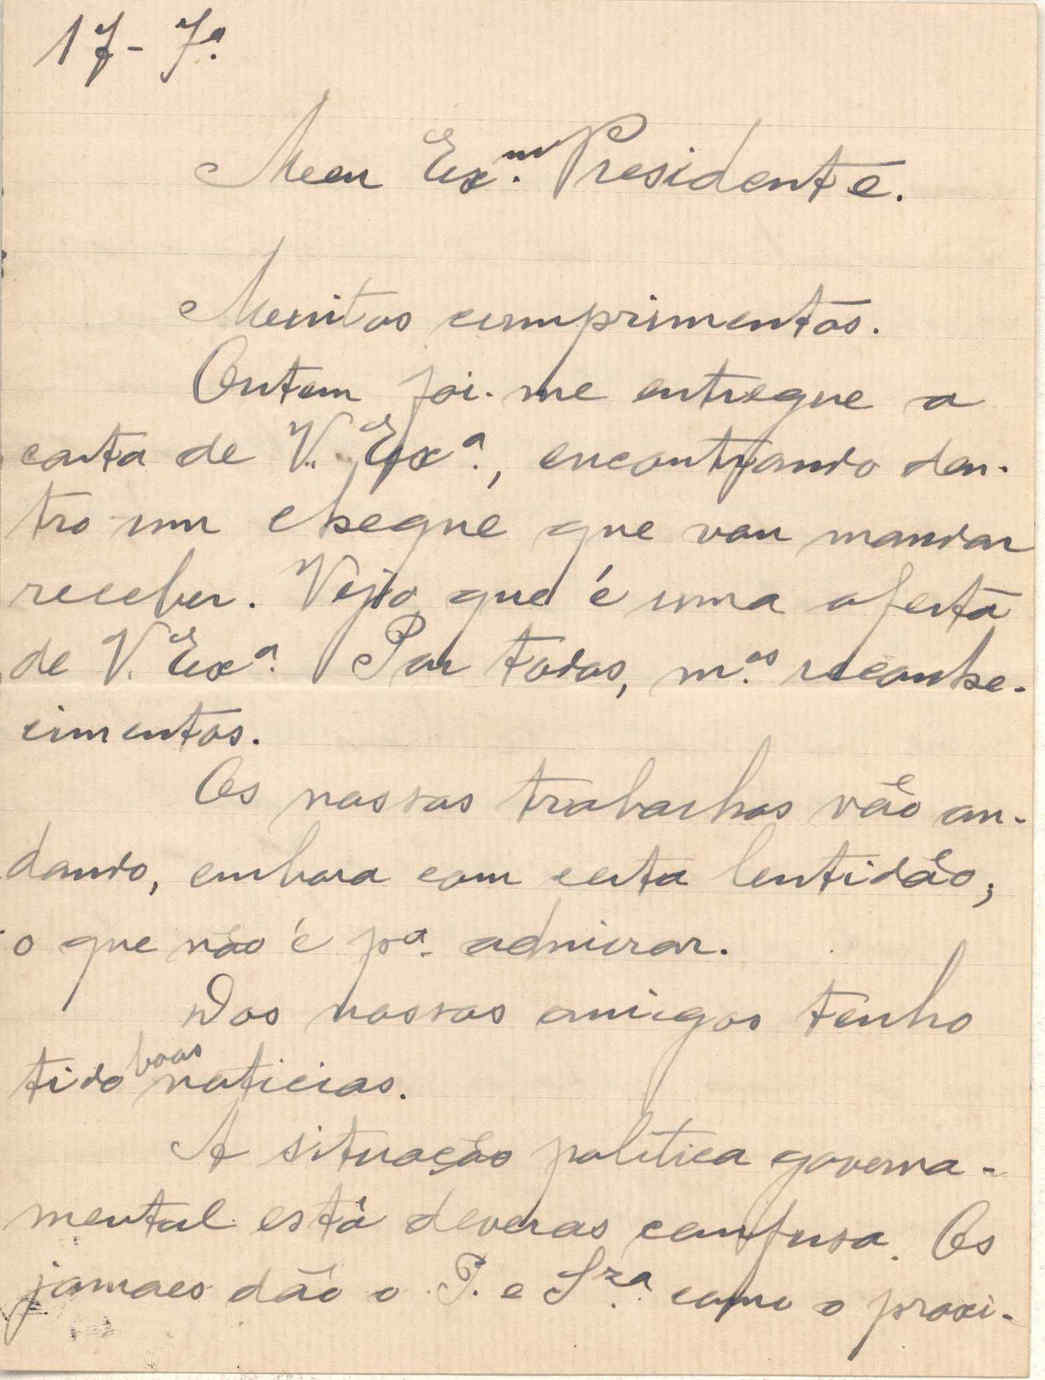 17-7º.
Meu Exmº. Presidente.
Muitos cumprimentos.
Ontem foi-me entregue a
carta de V. Exª., encontrando den-
tro um cheque que vou mandar
receber. Vejo que é uma oferta
de V. Exª. Por todos, m.os reconhe-
cimentos.
Os nossos trabalhos vão an-
dando, embora com certa lentidão,
o que não é pª. admirar.
Dos nossos amigos tenho
tido boas noticias.
A situação política governa-
mental está deveras confusa. Os
jornaes dão o P. e Sza. como o proxi-